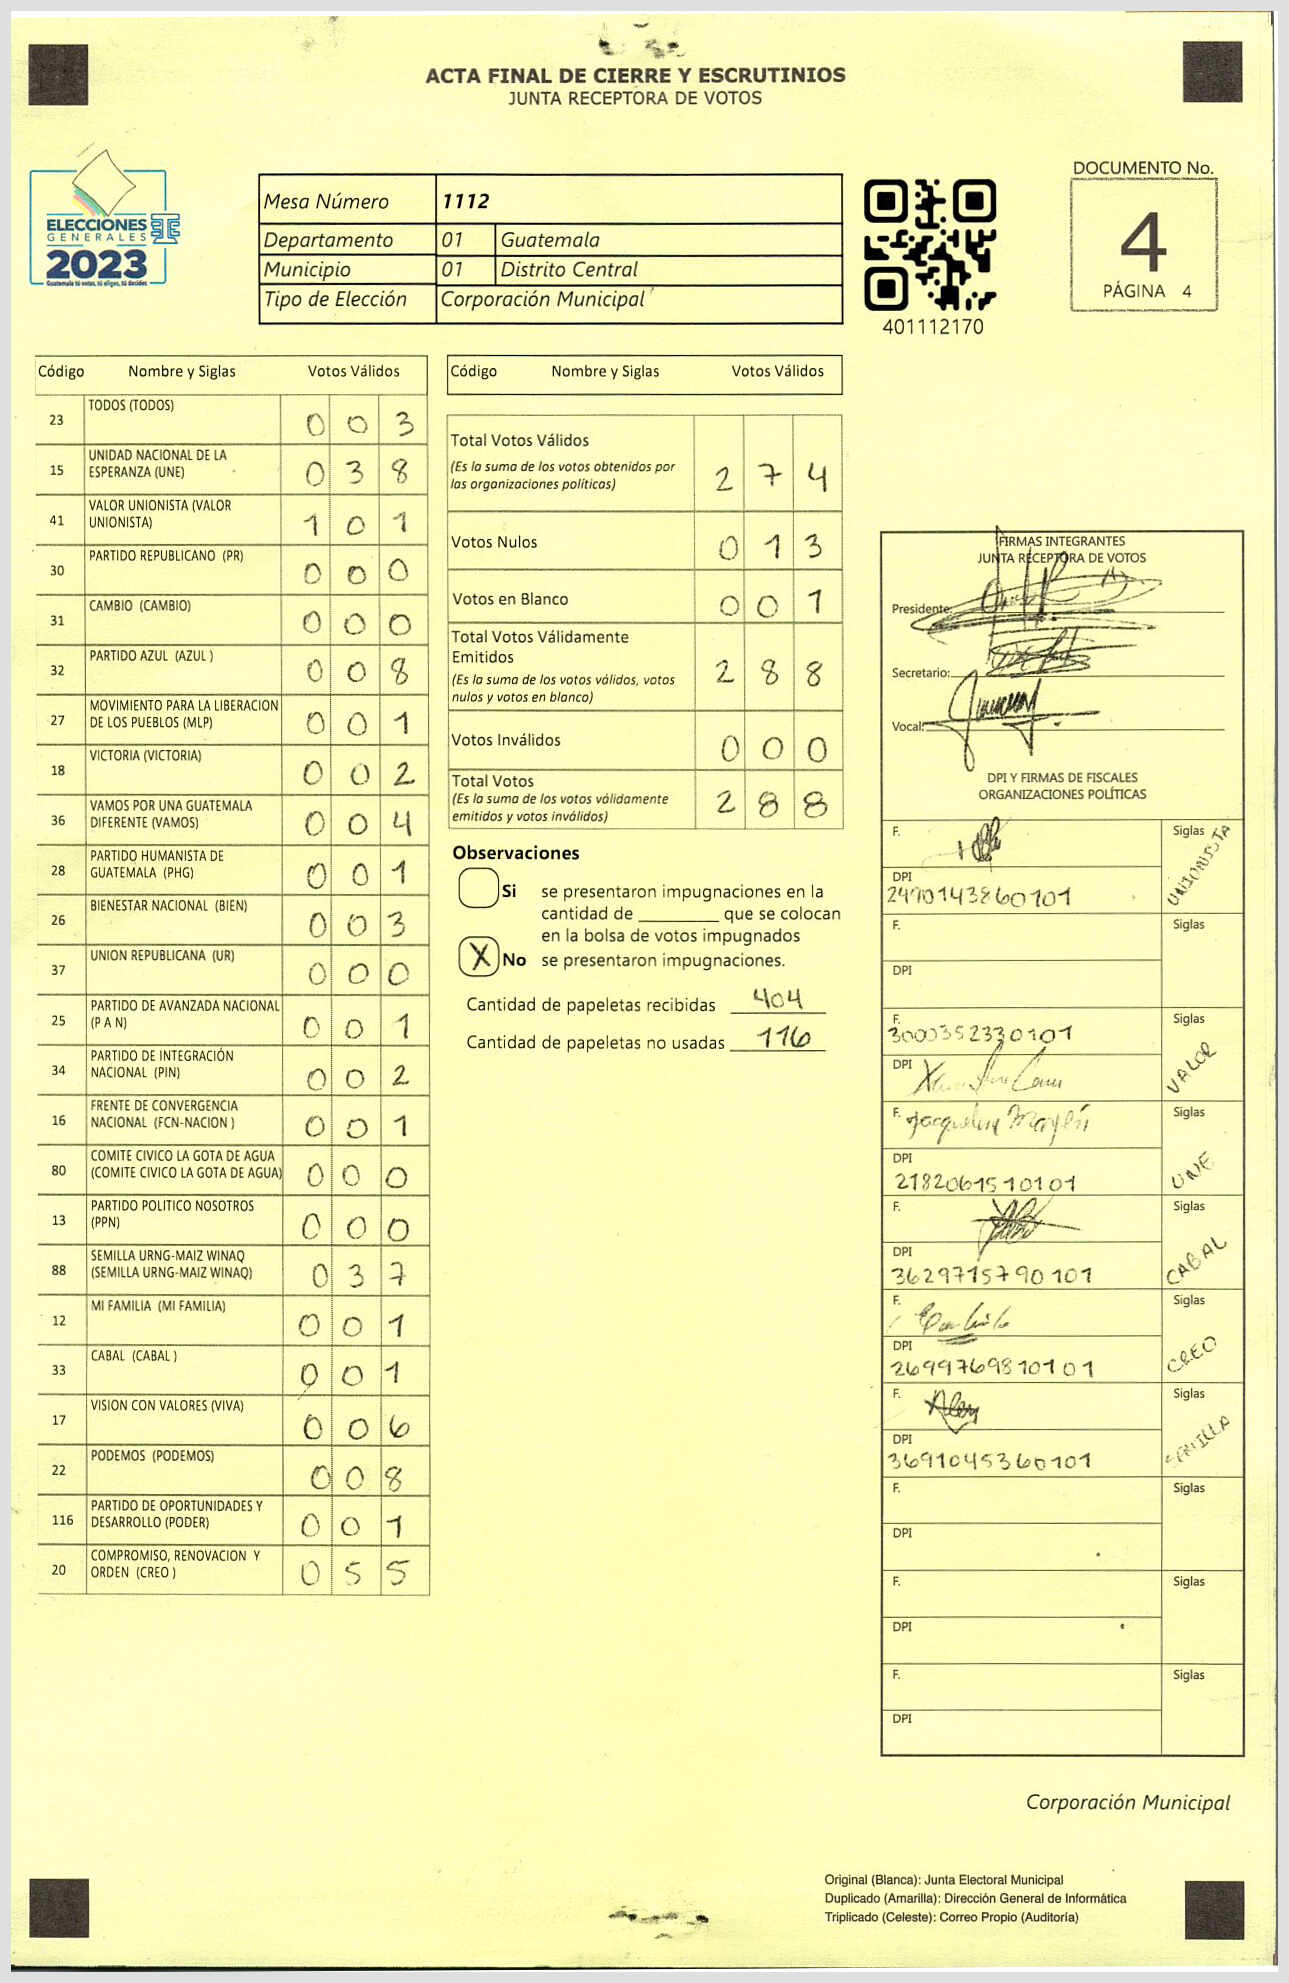 ACTA FINAL DE CIERRE Y ESCRUTINIOS
JUNTA RECEPTORA DE VOTOS
ELECCIONES
GENERALES
2023
Guatemala tú votas, tú eliges, tú decides
Mesa Número 1112
Departamento 01 Guatemala
Municipio 01 Distrito Central
Tipo de Elección Corporación Municipal
401112170
DOCUMENTO No.
4
PÁGINA 4
Código Nombre y Siglas Votos Válidos
23 TODOS (TODOS) 0 0 3
15 UNIDAD NACIONAL DE LA
ESPERANZA (UNE) 0 3 8
41 VALOR UNIONISTA (VALOR
UNIONISTA) 1 0 1
30 PARTIDO REPUBLICANO (PR) 0 0 0
31 CAMBIO (CAMBIO) 0 0 0
32 PARTIDO AZUL (AZUL ) 0 0 8
27 MOVIMIENTO PARA LA LIBERACION
DE LOS PUEBLOS (MLP) 0 0 1
18 VICTORIA (VICTORIA) 0 0 2
36 VAMOS POR UNA GUATEMALA
DIFERENTE (VAMOS) 0 0 4
28 PARTIDO HUMANISTA DE
GUATEMALA (PHG) 0 0 1
26 BIENESTAR NACIONAL (BIEN) 0 0 3
37 UNION REPUBLICANA (UR) 0 0 0
25 PARTIDO DE AVANZADA NACIONAL
(P A N) 0 0 1
34 PARTIDO DE INTEGRACIÓN
NACIONAL (PIN) 0 0 2
16 FRENTE DE CONVERGENCIA
NACIONAL (FCN-NACION ) 0 0 1
80 COMITE CIVICO LA GOTA DE AGUA
(COMITE CIVICO LA GOTA DE AGUA) 0 0 0
13 PARTIDO POLITICO NOSOTROS
(PPN) 0 0 0
88 SEMILLA URNG-MAIZ WINAQ
(SEMILLA URNG-MAIZ WINAQ) 0 3 7
12 MI FAMILIA (MI FAMILIA) 0 0 1
33 CABAL (CABAL ) 0 0 1
17 VISION CON VALORES (VIVA) 0 0 6
22 PODEMOS (PODEMOS) 0 0 8
116 PARTIDO DE OPORTUNIDADES Y
DESARROLLO (PODER) 0 0 1
20 COMPROMISO, RENOVACION Y
ORDEN (CREO ) 0 5 5
Código Nombre y Siglas Votos Válidos
Total Votos Válidos
(Es la suma de los votos obtenidos por
las organizaciones políticas) 2 7 4
Votos Nulos 0 1 3
Votos en Blanco 0 0 1
Total Votos Válidamente
Emitidos
(Es la suma de los votos válidos, votos
nulos y votos en blanco) 2 8 8
Votos Inválidos 0 0 0
Total Votos
(Es la suma de los votos válidamente
emitidos y votos inválidos) 2 8 8
Observaciones
Si se presentaron impugnaciones en la
cantidad de ________ que se colocan
en la bolsa de votos impugnados
X No se presentaron impugnaciones.
Cantidad de papeletas recibidas 404
Cantidad de papeletas no usadas 116
FIRMAS INTEGRANTES
JUNTA RECEPTORA DE VOTOS
Presidente:
Secretario:
Vocal:
DPI Y FIRMAS DE FISCALES
ORGANIZACIONES POLÍTICAS
F. Siglas UNIONISTA
DPI
2490143860101
F. Siglas
DPI
F. Siglas VALOR
3000352330101
DPI
F. Jacqueline Mayén Siglas UNE
DPI
2182061510101
F. Siglas CABAL
DPI
3629715790101
F. Siglas CREO
DPI
2699769810101
F. Alex Siglas SEMILLA
DPI
3691045360101
F. Siglas
DPI
F. Siglas
DPI
F. Siglas
DPI
Corporación Municipal
Original (Blanca): Junta Electoral Municipal
Duplicado (Amarilla): Dirección General de Informática
Triplicado (Celeste): Correo Propio (Auditoría)